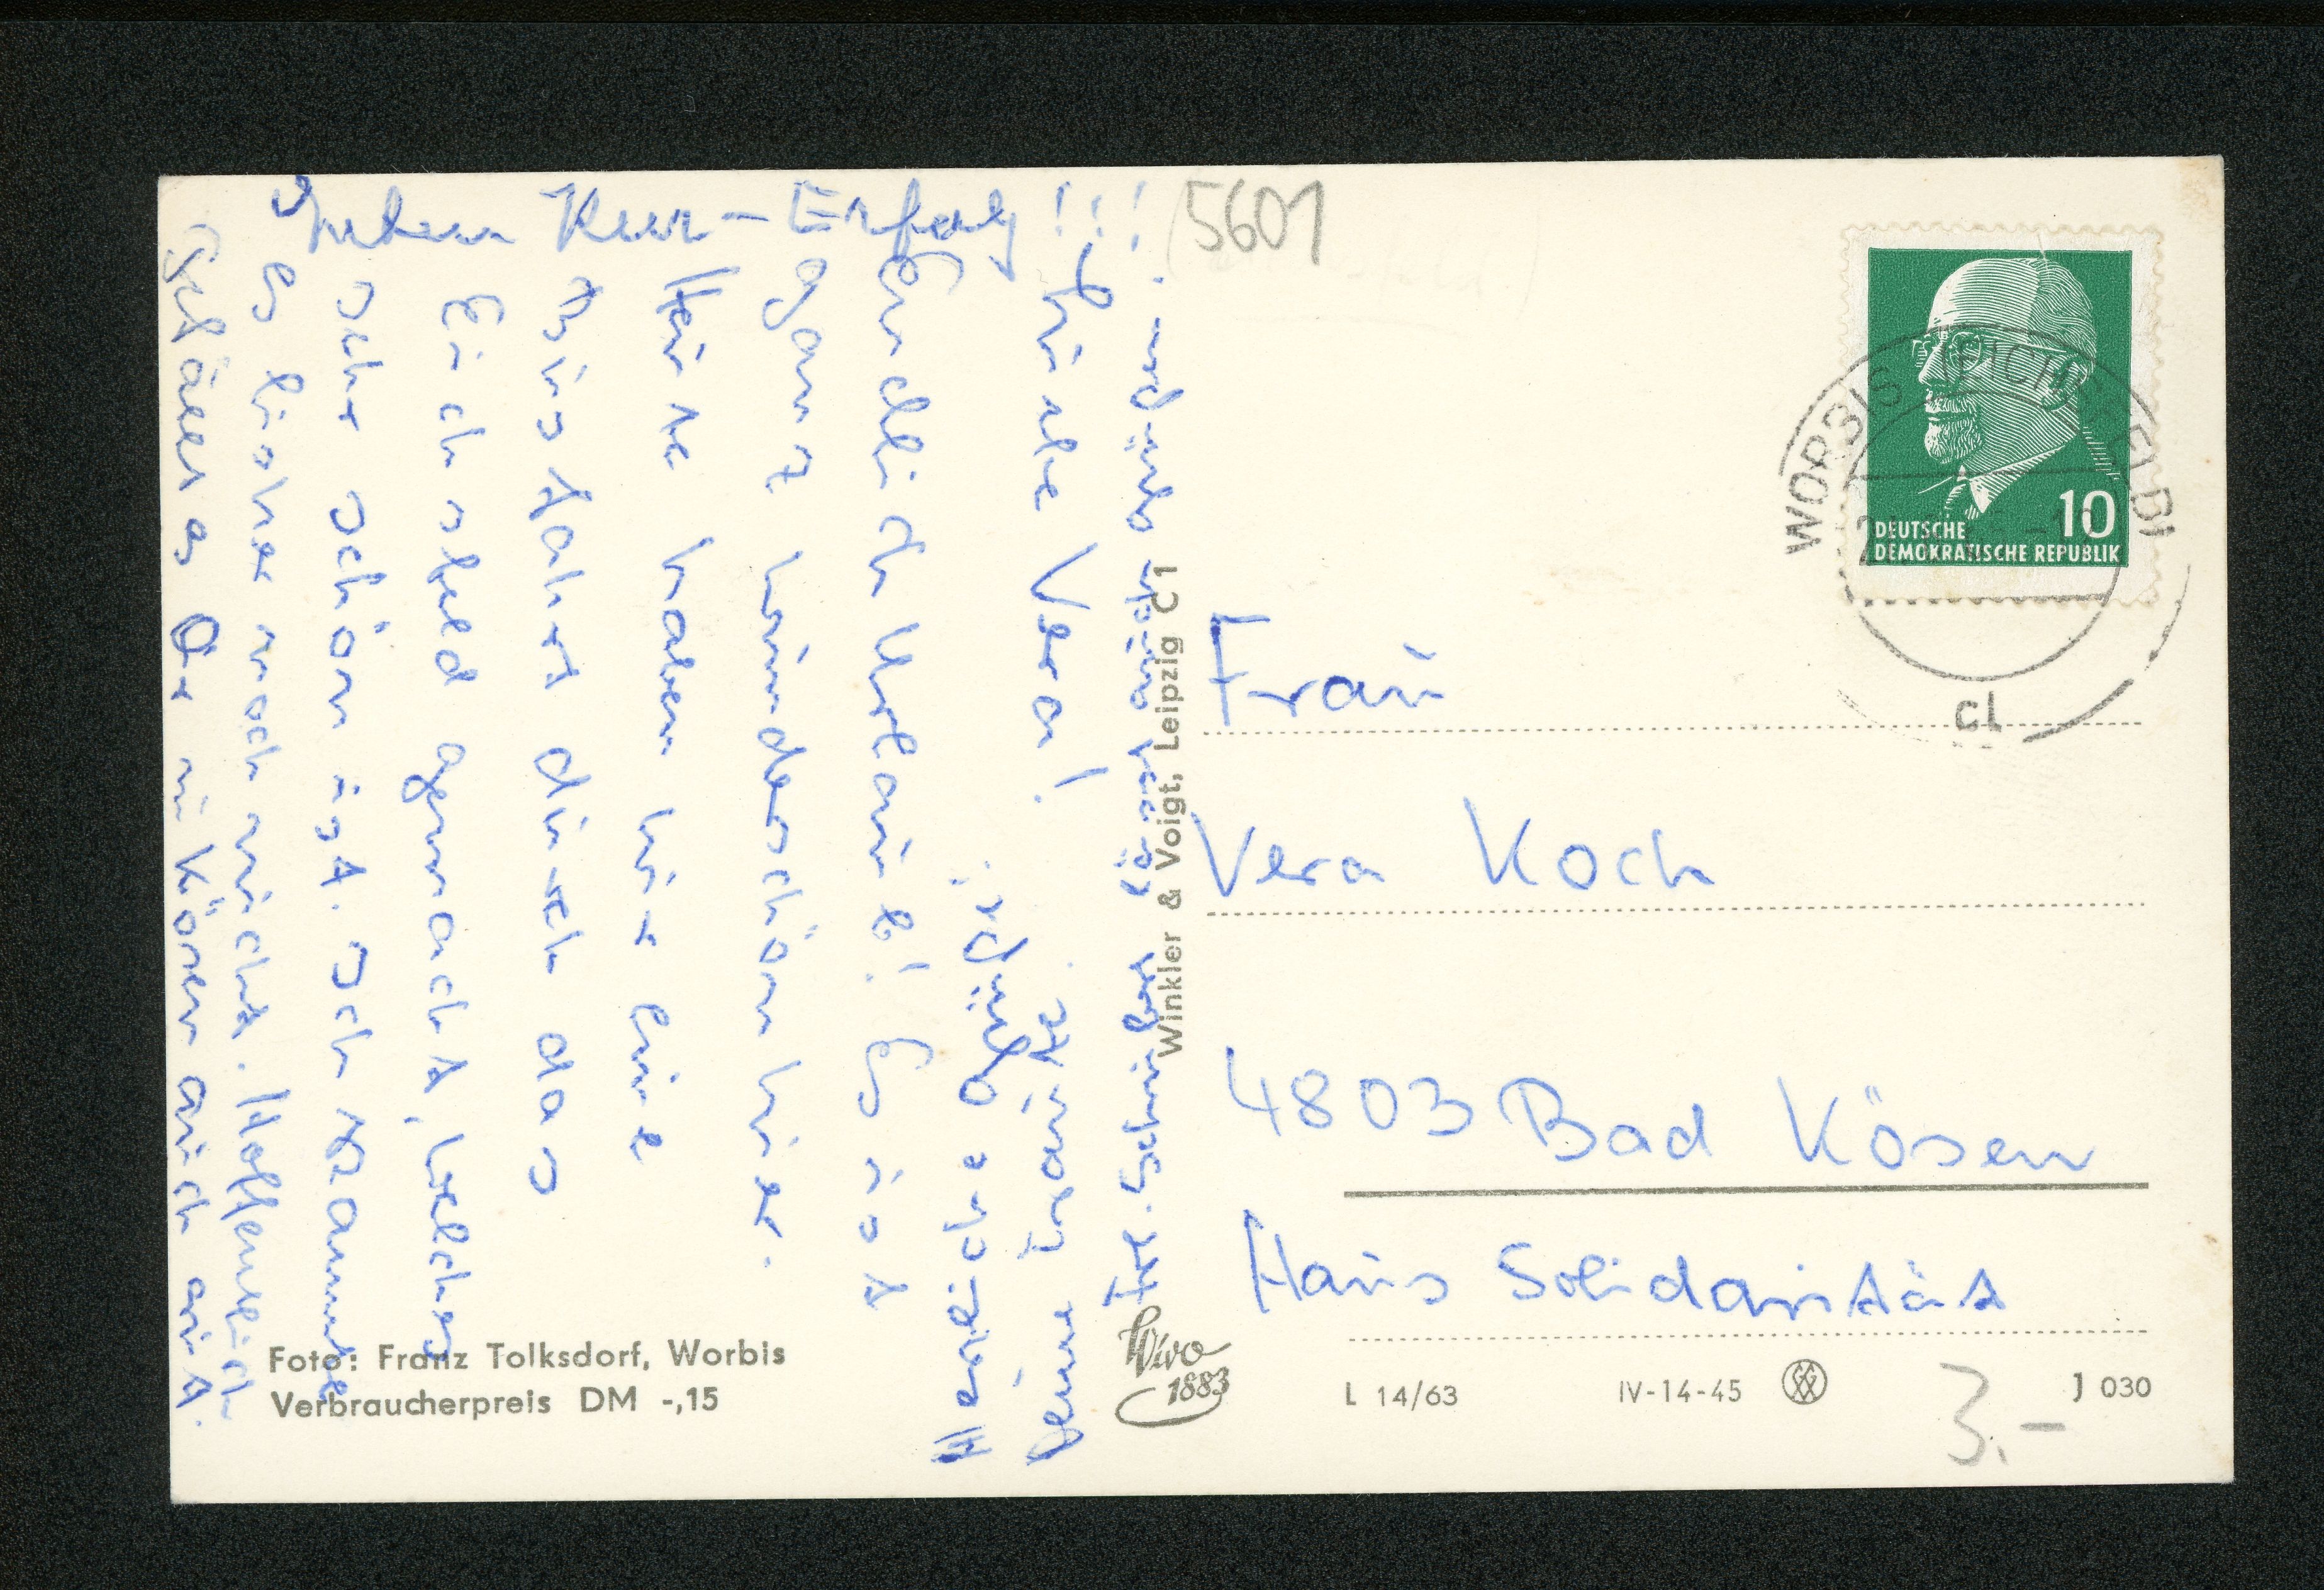 Liebe Vera!
Endlich Urlaub! Es ist
ganz wunderschön hier.
Heute haben wir eine
Busfahrt durch das
Eichsfeld gemacht, welches
sehr schön ist. Ich kannte
es bisher noch nicht. Hoffentlich
gefällt es Dir in Kösen auch gut.
Guten Kur-Erfolg!!!
Herzliche Grüße
(5601
Frau
Vera Koch
4803 Bad Kösen
Haus Solidarität
Winkler & Voigt, Leipzig C 1
Wivo
1883
Foto: Franz Tolksdorf, Worbis
Verbraucherpreis DM -,15
L 14/63
IV-14-45
J 030
3.-
10
DEUTSCHE
DEMOKRATISCHE REPUBLIK
WORBIS (EICHSFELD)